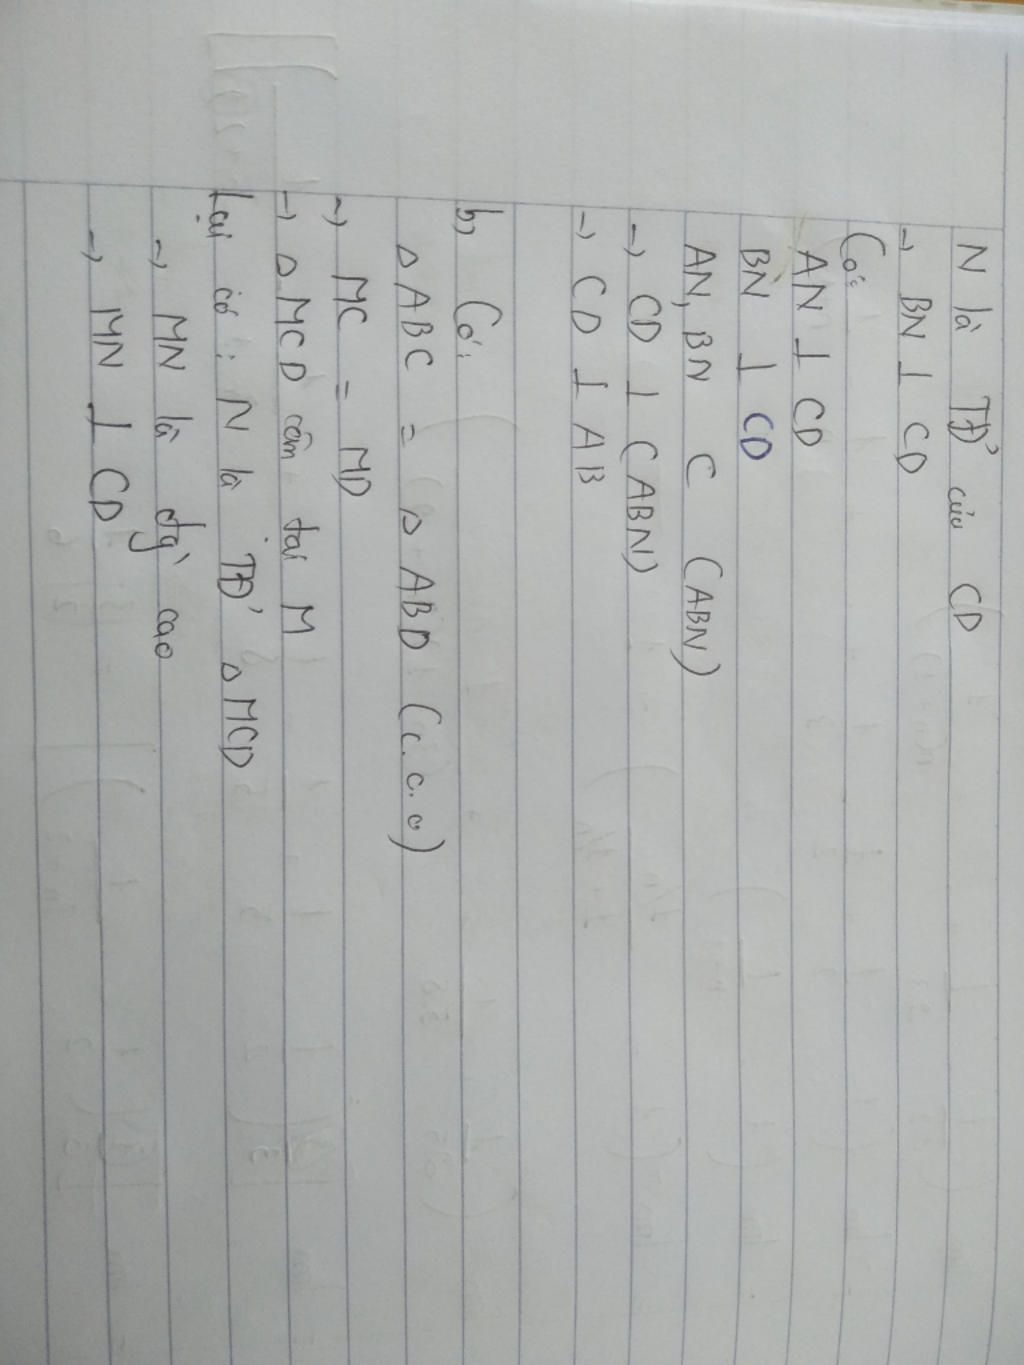 N là TĐ' của CD
→ BN ⊥ CD
Có:
AN ⊥ CD
BN ⊥ CD
AN, BN ⊂ (ABN)
→ CD ⊥ (ABN)
→ CD ⊥ AB
b, Có:
△ ABC = △ ABD (c.c.c)
→ MC = MD
→ △ MCD cân tại M
Lại có: N là TĐ' △ MCD
→ MN là đg` cao
→ MN ⊥ CD